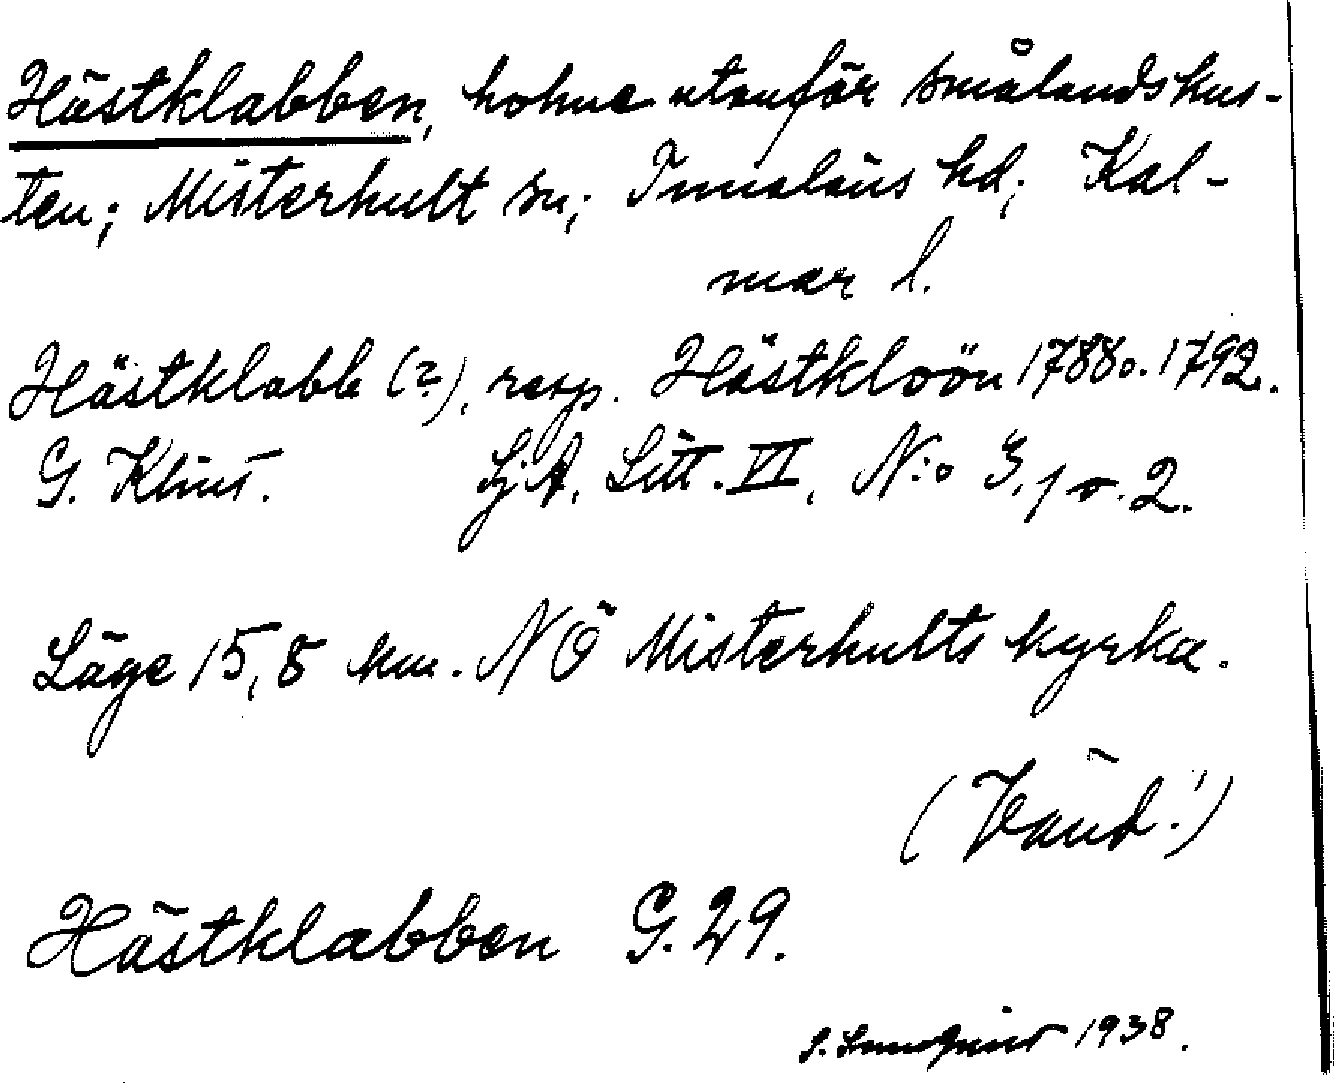 Hästklabben, holme utanför smålandskus-
ten; Misterhult sn; Tunaläns hd; Kal-
mar l.
Hästklabb (?), resp. Hästkloön 1788 o. 1792.
G. Klint. SjA, Litt. VI, N:o 3, 1 o. 2.
Läge 15,8 km. NÖ Misterhults kyrka.
(Vänd!)
Hästklabben G. 29.
1938.